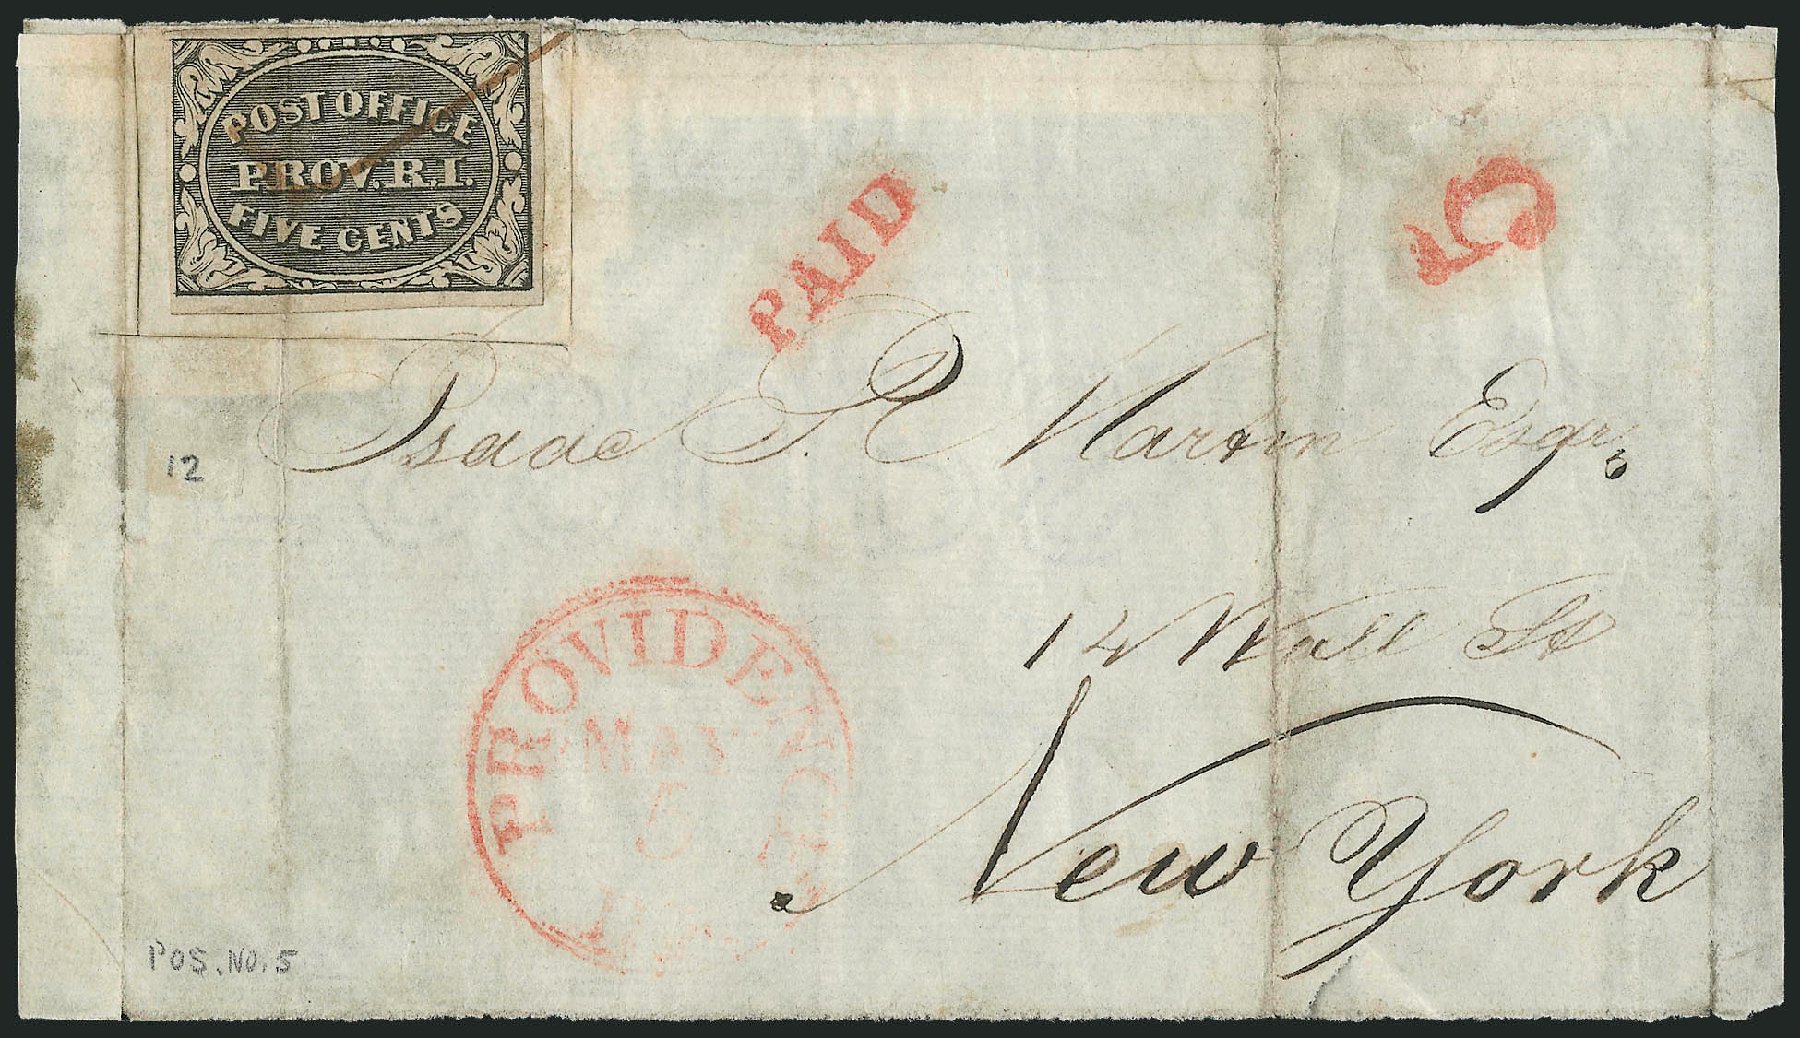 POST OFFICE
PROV. R. I.
FIVE CENTS
PAID
5
Isaac P. R. Martin Esqr,
12
14 Wall St
New York
PROVIDENCE
MAY
5
POS. NO. 5